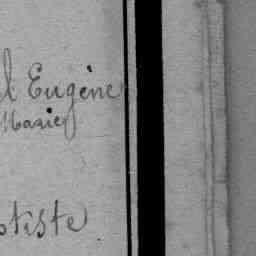 l Eugène
Marie
otiste